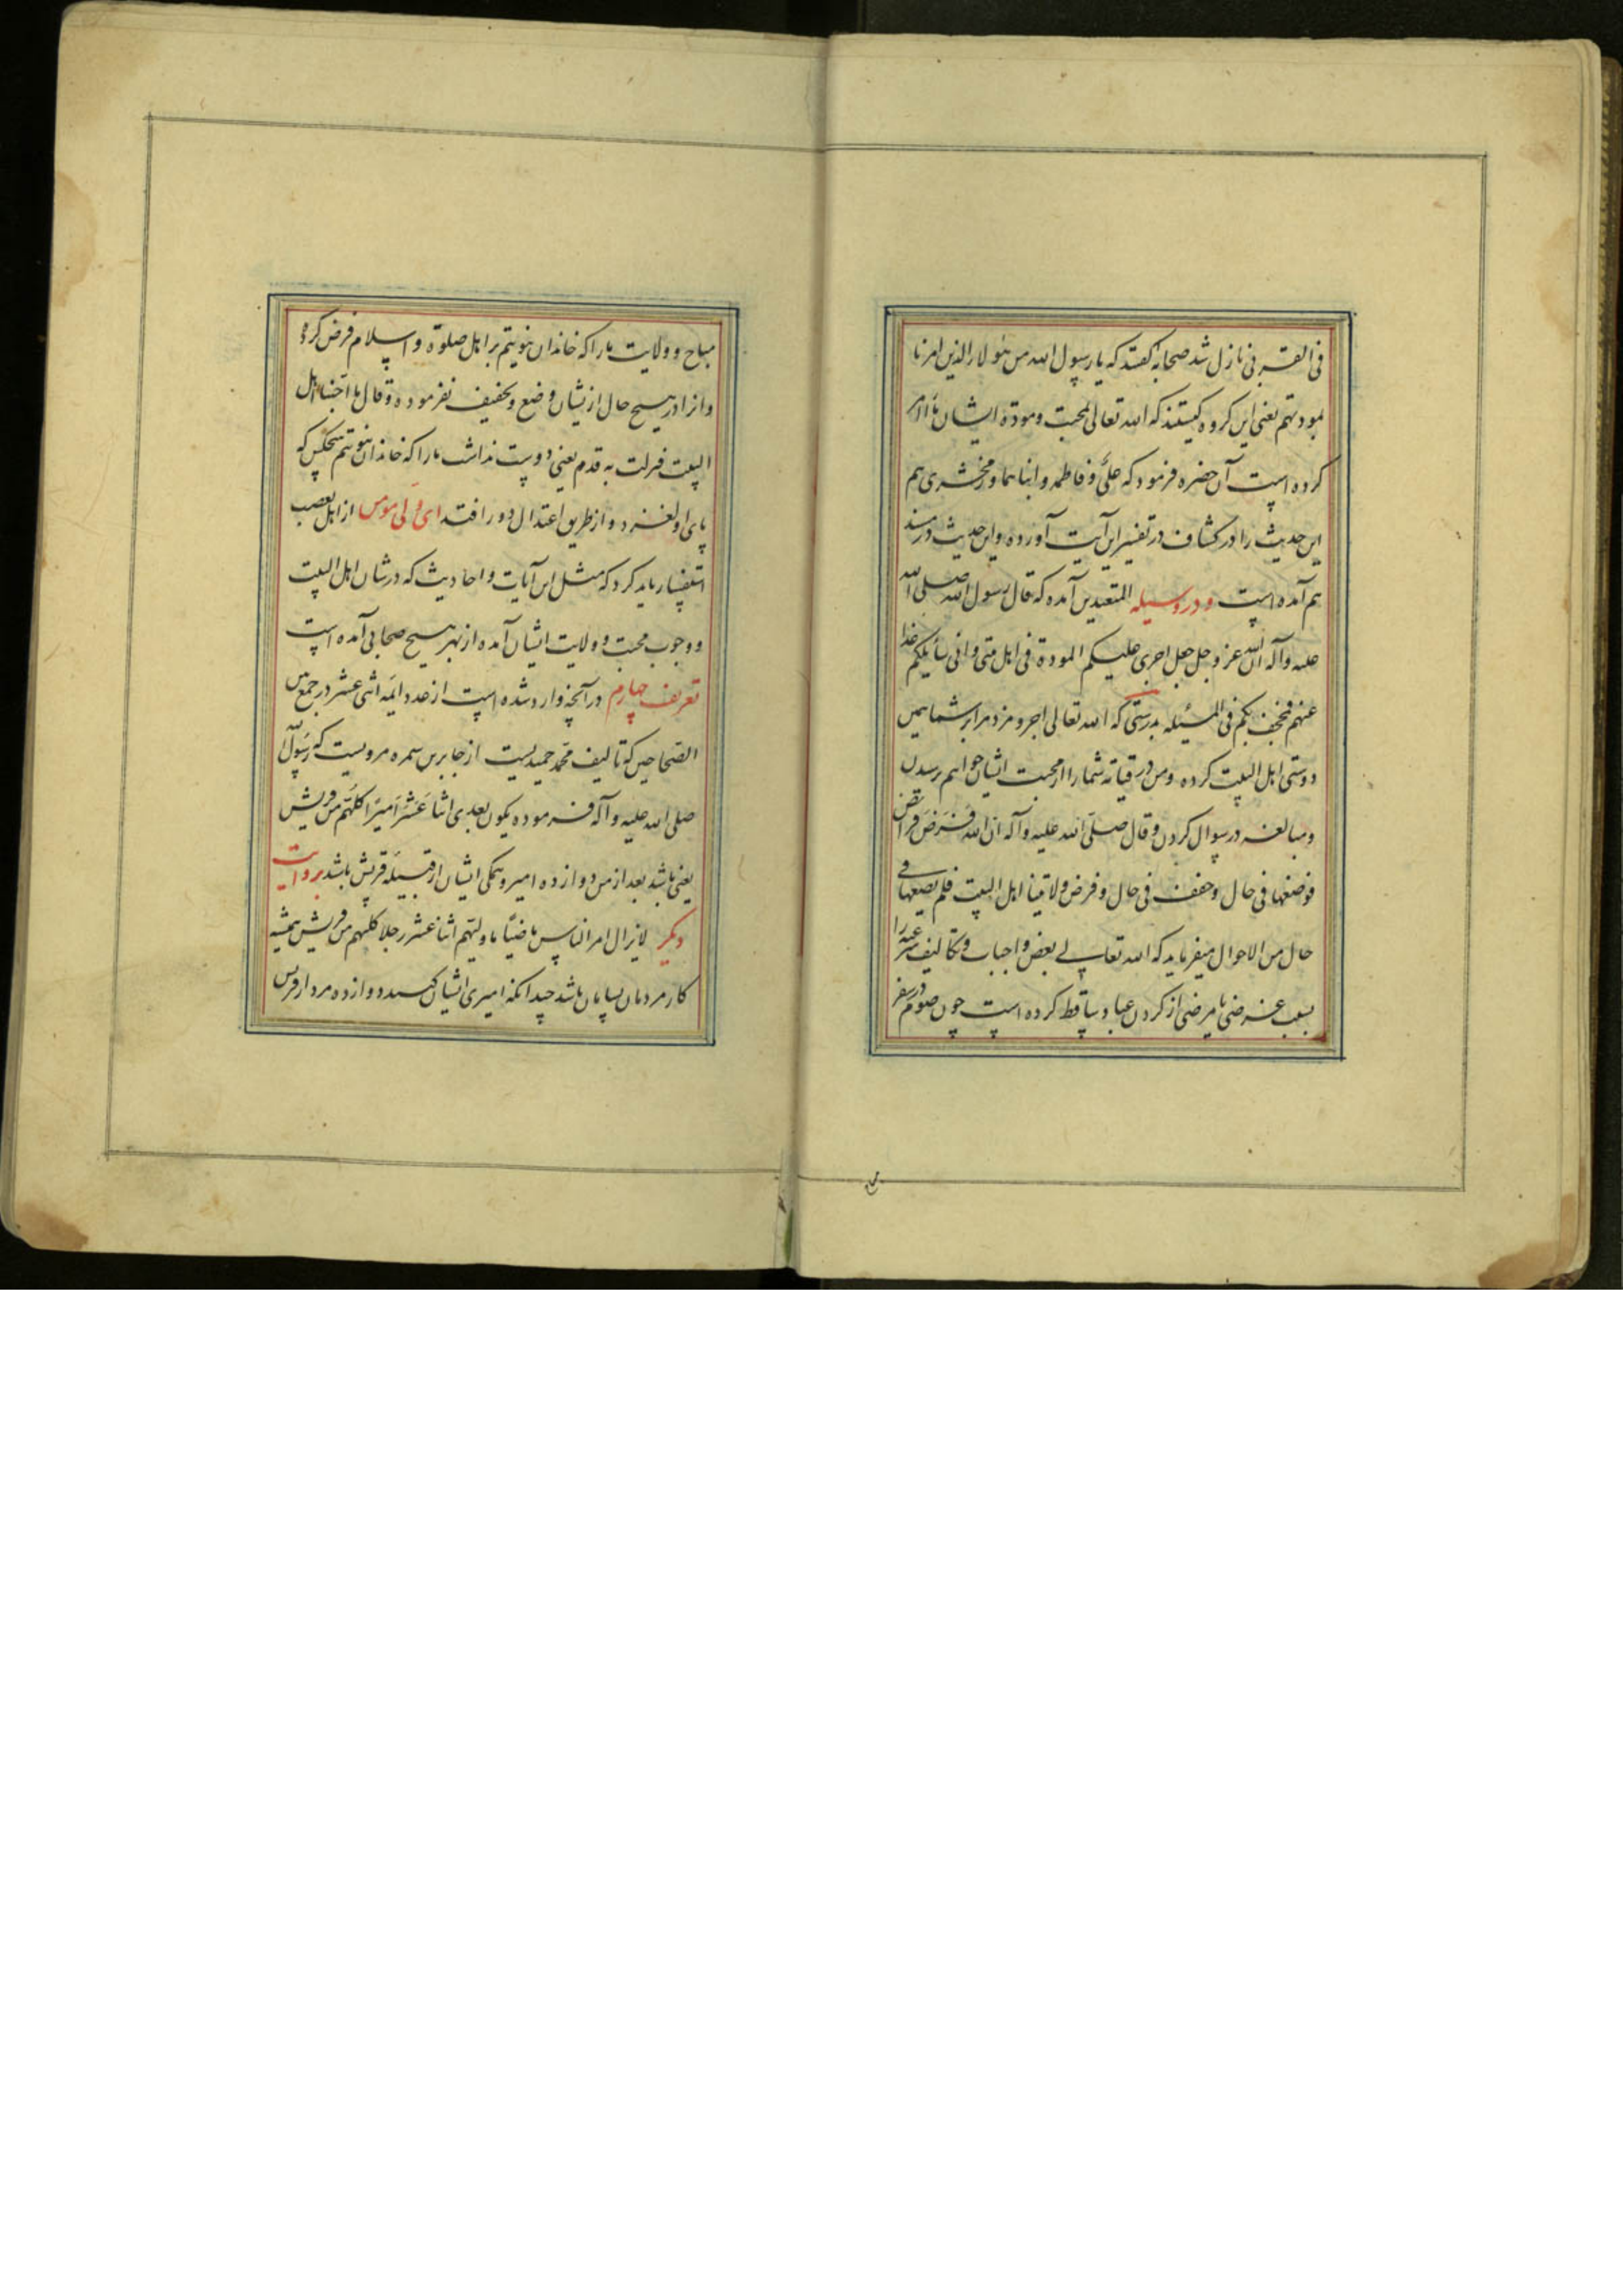 فی القربی نازل شد صحابه گفتند که یا رسول الله من هولاء الذین امرنا
بمودتهم یعنی این گروه کیستند که الله تعالی بمحبت و مودة ایشان ما را امر
کرده است آن حضره فرمود که علی و فاطمه و ابناهما و زمخشری هم
این حدیث را در کشاف در تفسیر این آیت آورده و این حدیث در مسند
هم آمده است و در وسیله المتعبدین آمده که قال رسول الله صلی الله
علیه و آله ان الله عز و جل جعل اجری علیکم المودة فی اهل بیتی و انی سایلکم غدا
عنهم فمحف بکم فی المسئیله بدرستی که الله تعالی اجر و مزد مرا بر شما همین
دوستی اهل البیت کرده و من در قیامة شما را از محبت ایشان خواهم رسیدن
و مبالغه در سوال کردن و قال صلی الله علیه و آله ان الله فرض فرائض
فوضعها فی حال و خفف فی حال و فرض ولایتنا اهل البیت فلم یضعها فی
حال من الاحوال میفرماید که الله تعالی بعض واجبات و تکالیف شرعیه را
بسبب عرضی یا مرضی از کردن عباد ساقط کرده است چون صوم در سفر
مباح و ولایت ما را که خاندان نبوتیم بر اهل صلوة و اسلام فرض کرده
و انرا در هیچ حال از یشان وضع و تخفیف نفرموده و قال ما احبنا اهل
البیت فزلت به قدم یعنی دوست نداشت ما را که خاندان نبوتیم هیچکس که
پای او لغزد و از طریق اعتدال دور افتد ای ولی مومن از اهل تعصب
استفسار باید کرد که مثل این آیات و احادیث که در شان اهل البیت
و وجوب محبت و ولایت ایشان آمده از بهر هیچ صحابی آمده است
تعریف چهارم در آنچه وارد شده است از عدد ایمه اثنی عشر در جمع بین
الصحاحین که تالیف محمد حمیدیست از جابر بن سمره مرویست که رسول الله
صلی الله علیه و آله فرموده یکون بعدی اثنا عشر امیرا کلهم من قریش
یعنی باشد بعد از من دوازده امیر و همگی ایشان از قبیله قریش باشد بروایت
دیگر لایزال امر الناس ماضیا ما ولیهم اثنا عشر رجلا کلهم من قریش همیشه
کار مردمان بسامان باشد چندانکه امیری ایشان کنند دوازده مرد از قریش